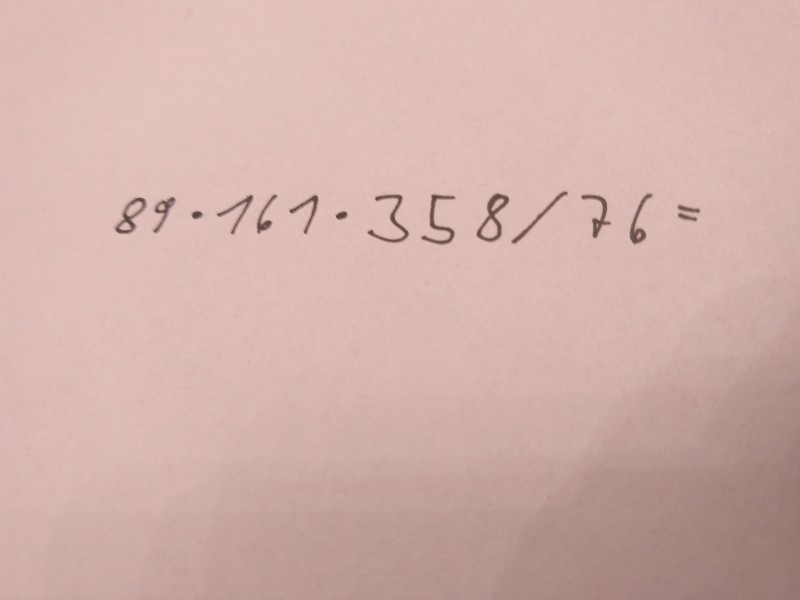 89·161·358/76=